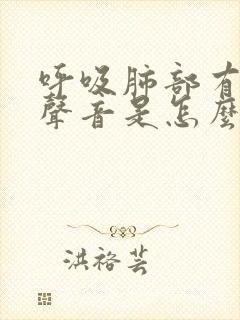 呼吸肺部有
聲音是怎麼
洪褣芸